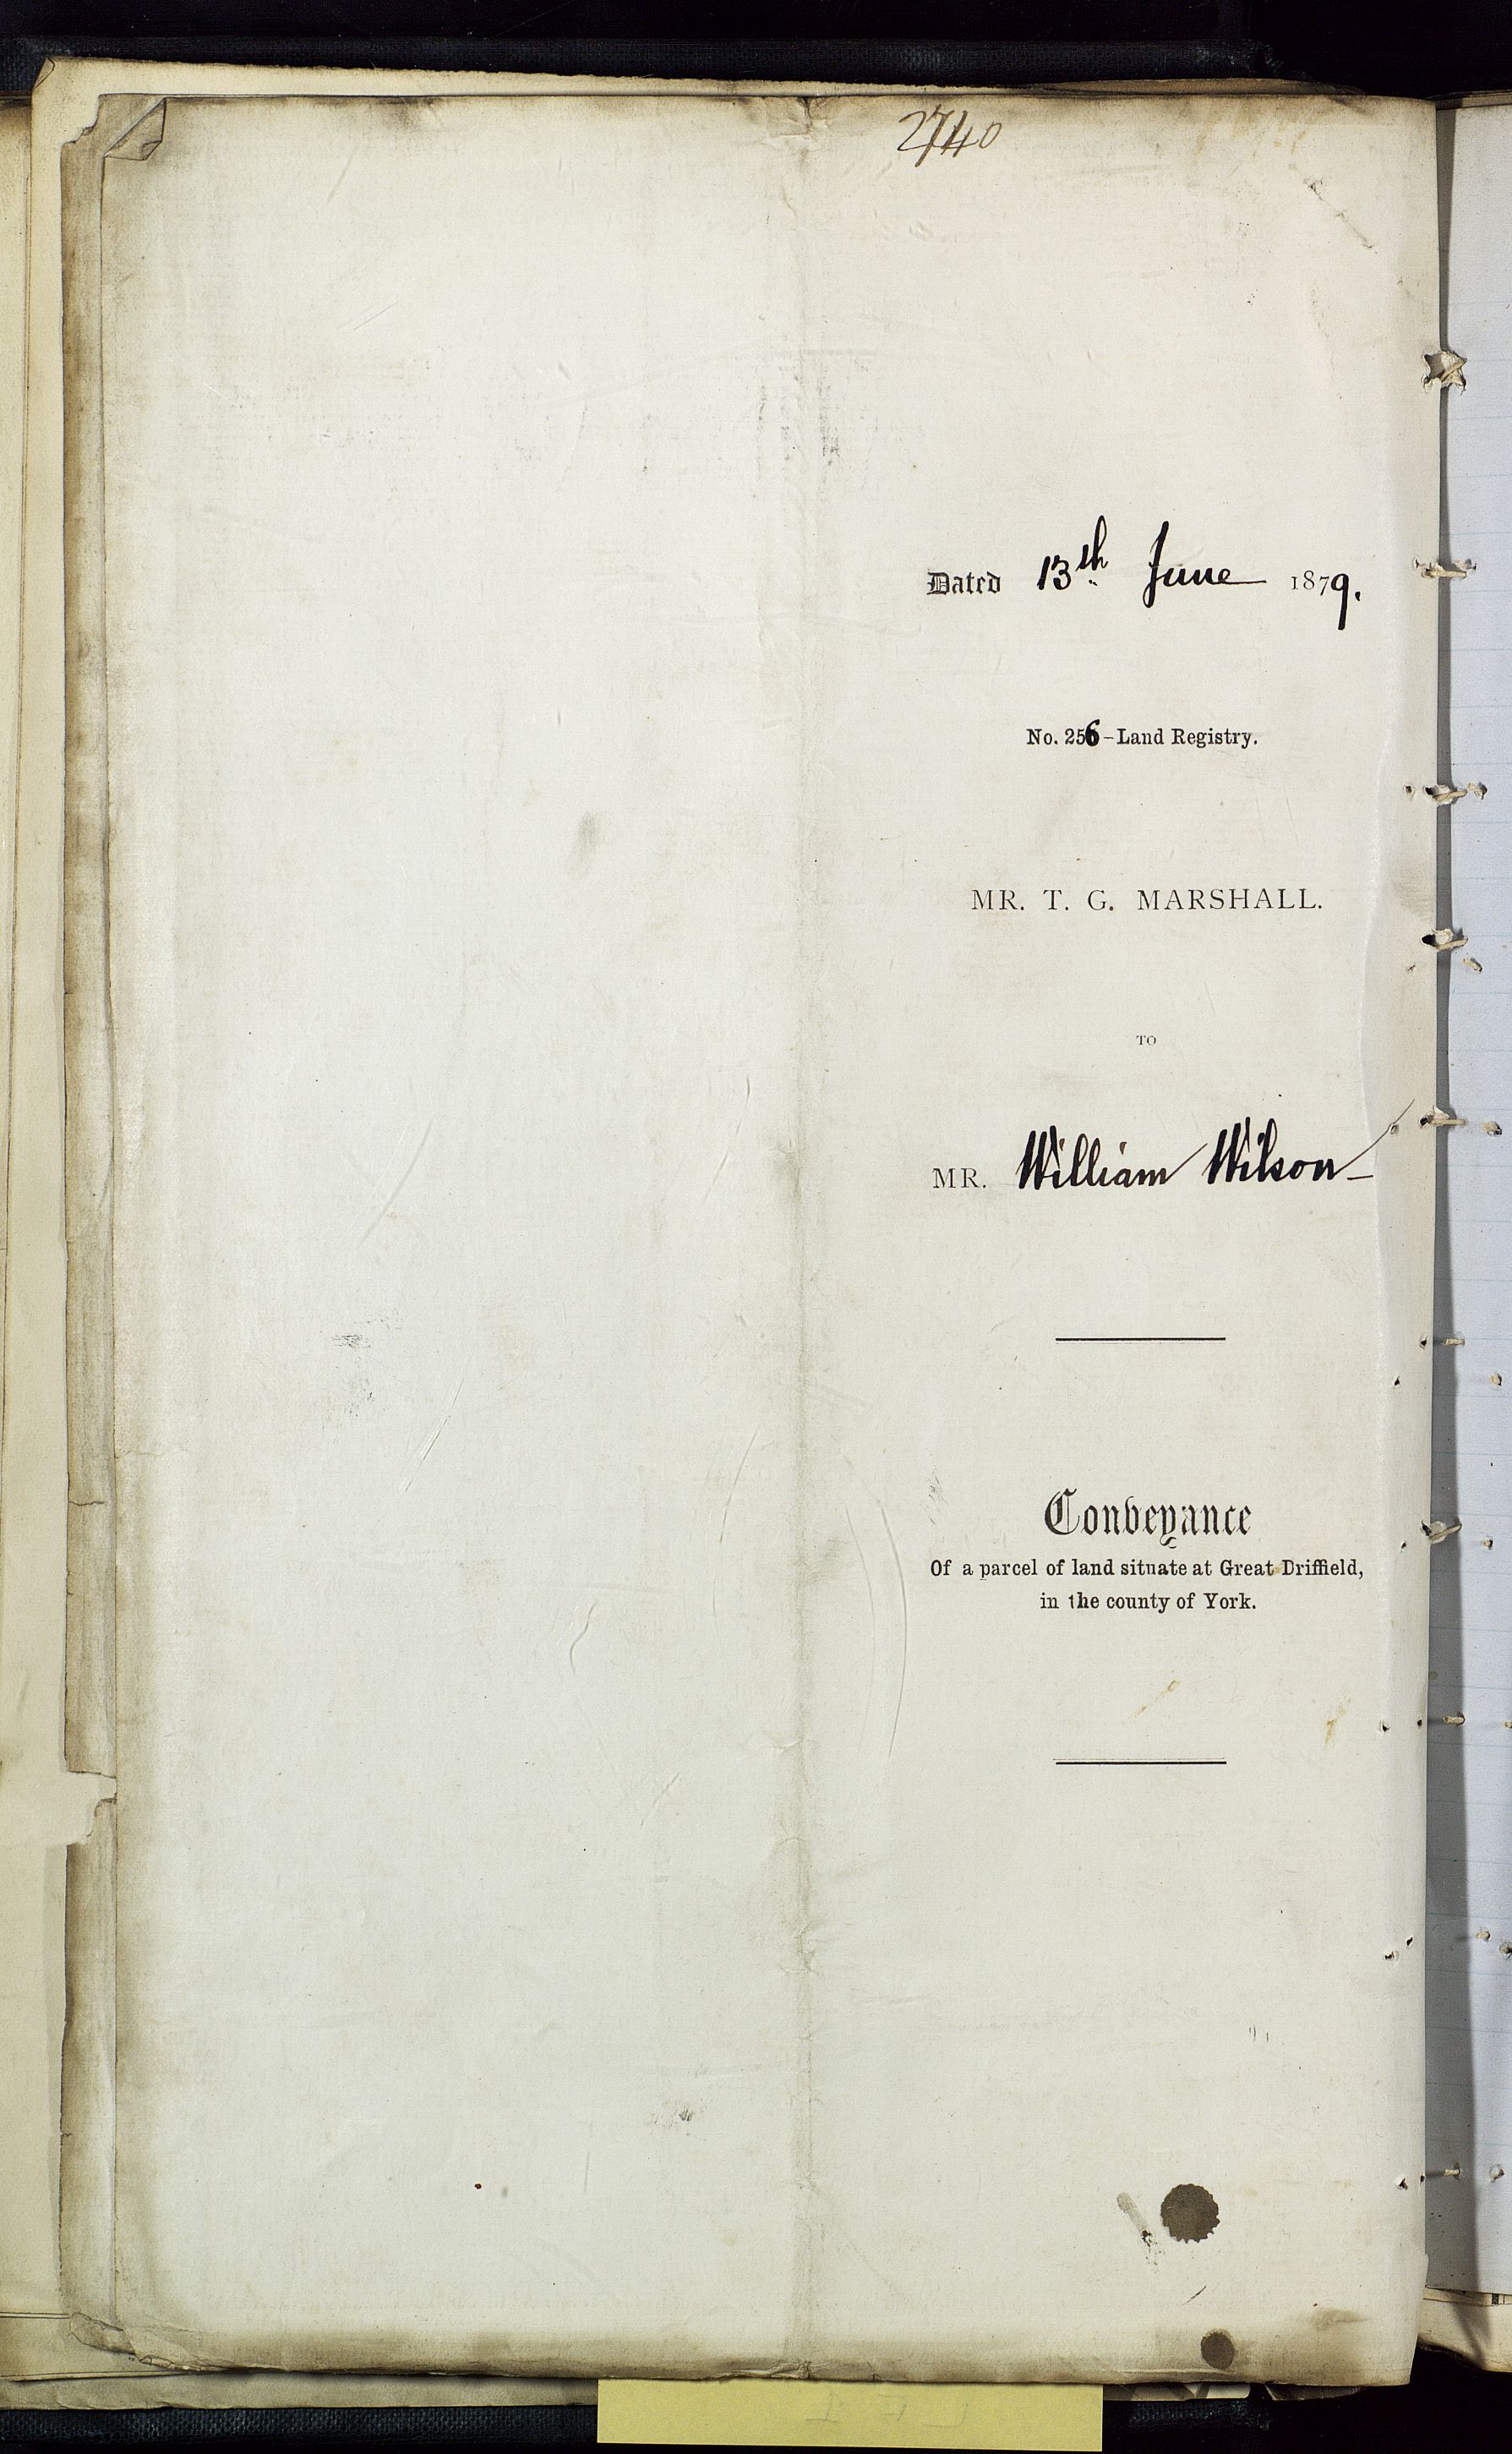 2740
Dated 13th June 1879.
No. 256-Land Registry.
MR. T. G. MARSHALL.
TO
MR. William Wilson
Conveyance
Of a parcel of land situate at Great Driffield,
in the county of York.